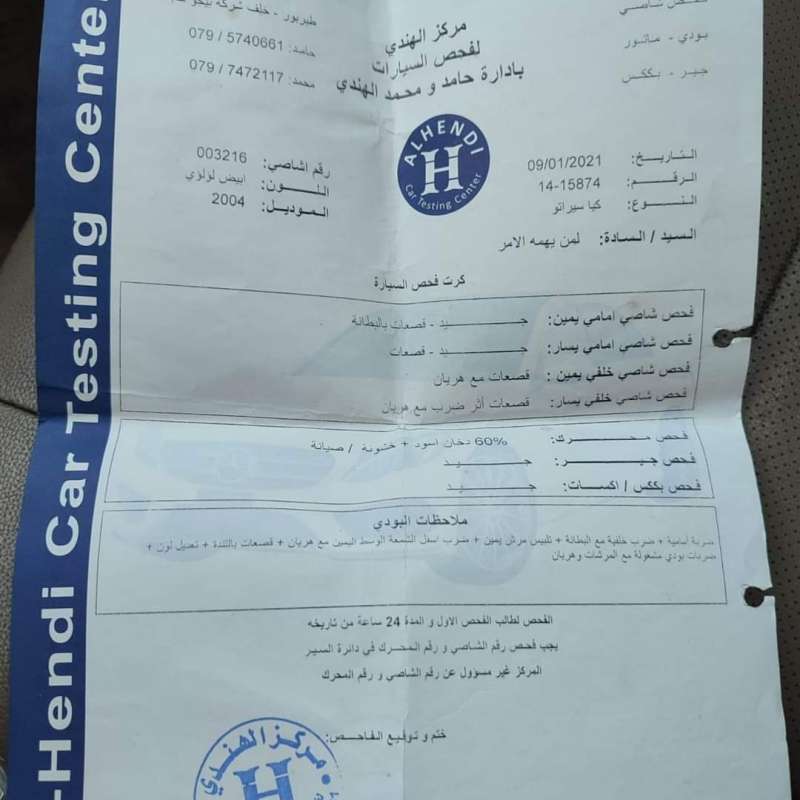 Al-Hendi Car Testing Center
فحص شاصي
بودي - ماتور
جير - بككس
مركز الهندي
لفحص السيارات
بادارة حامد و محمد الهندي
طبربور - خلف شركة
حامد: 5740661 / 079
محمد: 7472117 / 079
ALHENDI
H
Car Testing Center
التاريخ: 09/01/2021
الرقم: 14-15874
النوع: كيا سيراتو
رقم اشاصي: 003216
اللون: ابيض لولؤي
الموديل: 2004
السيد / السادة: لمن يهمه الامر
كرت فحص السيارة
فحص شاصي امامي يمين: جيد - قصعات بالبطانة
فحص شاصي امامي يسار: جيد - قصعات
فحص شاصي خلفي يمين: قصعات مع هريان
فحص شاصي خلفي يسار: قصعات أثر ضرب مع هريان
فحص محرك: 60% دخان اسود + ختونة / صيانة
فحص جير: جيد
فحص بككس / اكسات: جيد
ملاحظات البودي
ضربة أمامية + ضرب خلفية مع البطانة + تلبيس مرش يمين + ضرب اسفل الشمعة الوسط اليمين مع هريان + قصعات بالتندة + تعديل لون +
ضربات بودي مشغولة مع المرشات وهريان
الفحص لطالب الفحص الاول و المدة 24 ساعة من تاريخه
يجب فحص رقم الشاصي و رقم المحرك في دائرة السير
المركز غير مسؤول عن رقم الشاصي و رقم المحرك
ختم و توقيع الفاحص:
مركز الهندي
H